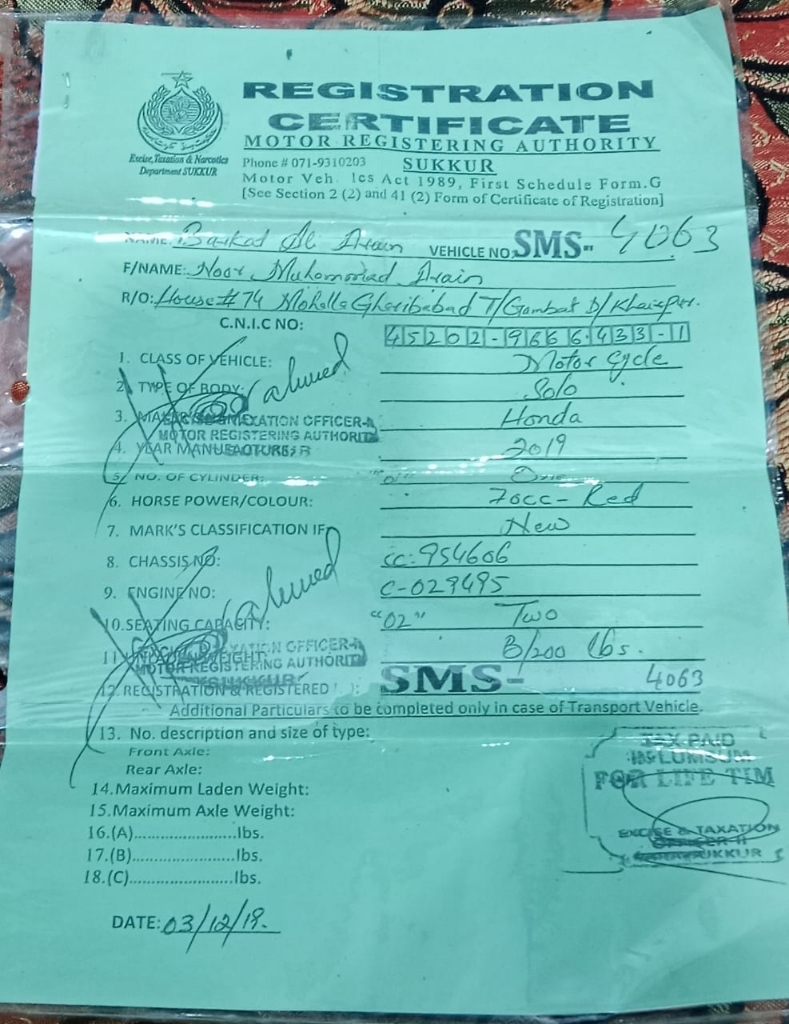 REGISTRATION
CERTIFICATE
MOTOR REGISTERING AUTHORITY
SUKKUR
Excise, Taxation & Narcotics
Department SUKKUR
Phone # 071-9310203
Motor Veh les Act 1989, First Schedule Form.G
[See Section 2 (2) and 41 (2) Form of Certificate of Registration]
NAME: Barkat Ali Arain VEHICLE NO. SMS- 4063
F/NAME: Noor Muhammad Arain
R/O: House # 74 Mohalla Gharibabad T/Gambat D/Khairpur.
C.N.I.C NO: 45202-9666433-1
1. CLASS OF VEHICLE: Motor Cycle
2. TYPE OF BODY: Solo
3. MAKER'S Honda
4. YEAR MANUFACTURER 2019
5. NO. OF CYLINDER: "01" One
6. HORSE POWER/COLOUR: 70cc - Red
7. MARK'S CLASSIFICATION IF New
8. CHASSIS NO: CC-954606
9. ENGINE NO: C-029495
10. SEATING CAPACITY: "02" Two
11. WEIGHT B/200 lbs.
12. REGISTRATION & REGISTERED ( ): SMS- 4063
ahmed
TAXATION OFFICER-
MOTOR REGISTERING AUTHORITY
ahmed
TAXATION OFFICER-
MOTOR REGISTERING AUTHORITY
SUKKUR
Additional Particulars to be completed only in case of Transport Vehicle.
13. No. description and size of type:
Front Axle:
Rear Axle:
14. Maximum Laden Weight:
15. Maximum Axle Weight:
16. (A)......................lbs.
17. (B)......................lbs.
18. (C)......................lbs.
TAX PAID
IN LUMSUM
FOR LIFE TIM
EXCISE & TAXATION
OFFICER-II
SUKKUR
DATE: 03/12/19.